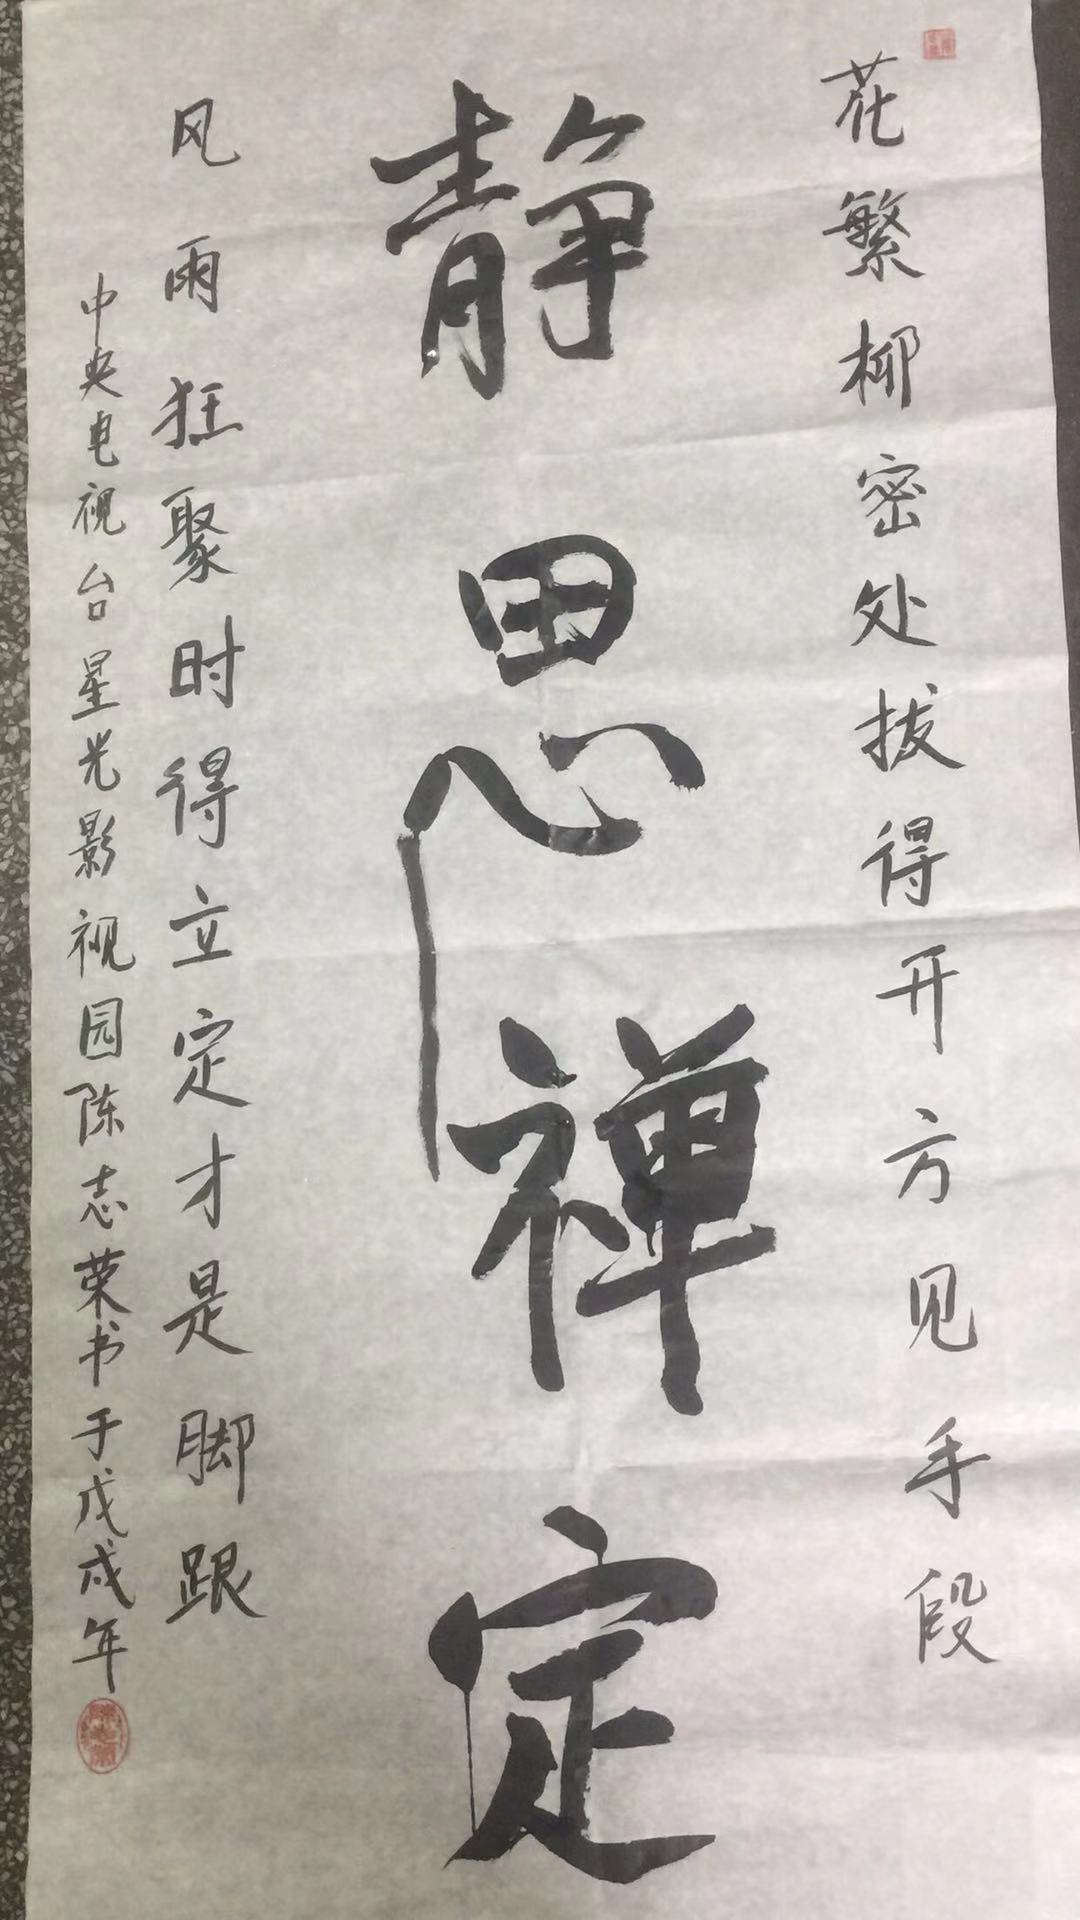 花繁柳密处拔得开方见手段
静思禅定
风雨狂聚时得立定才是脚跟
中央电视台星光影视园陈志荣书于戊戌年